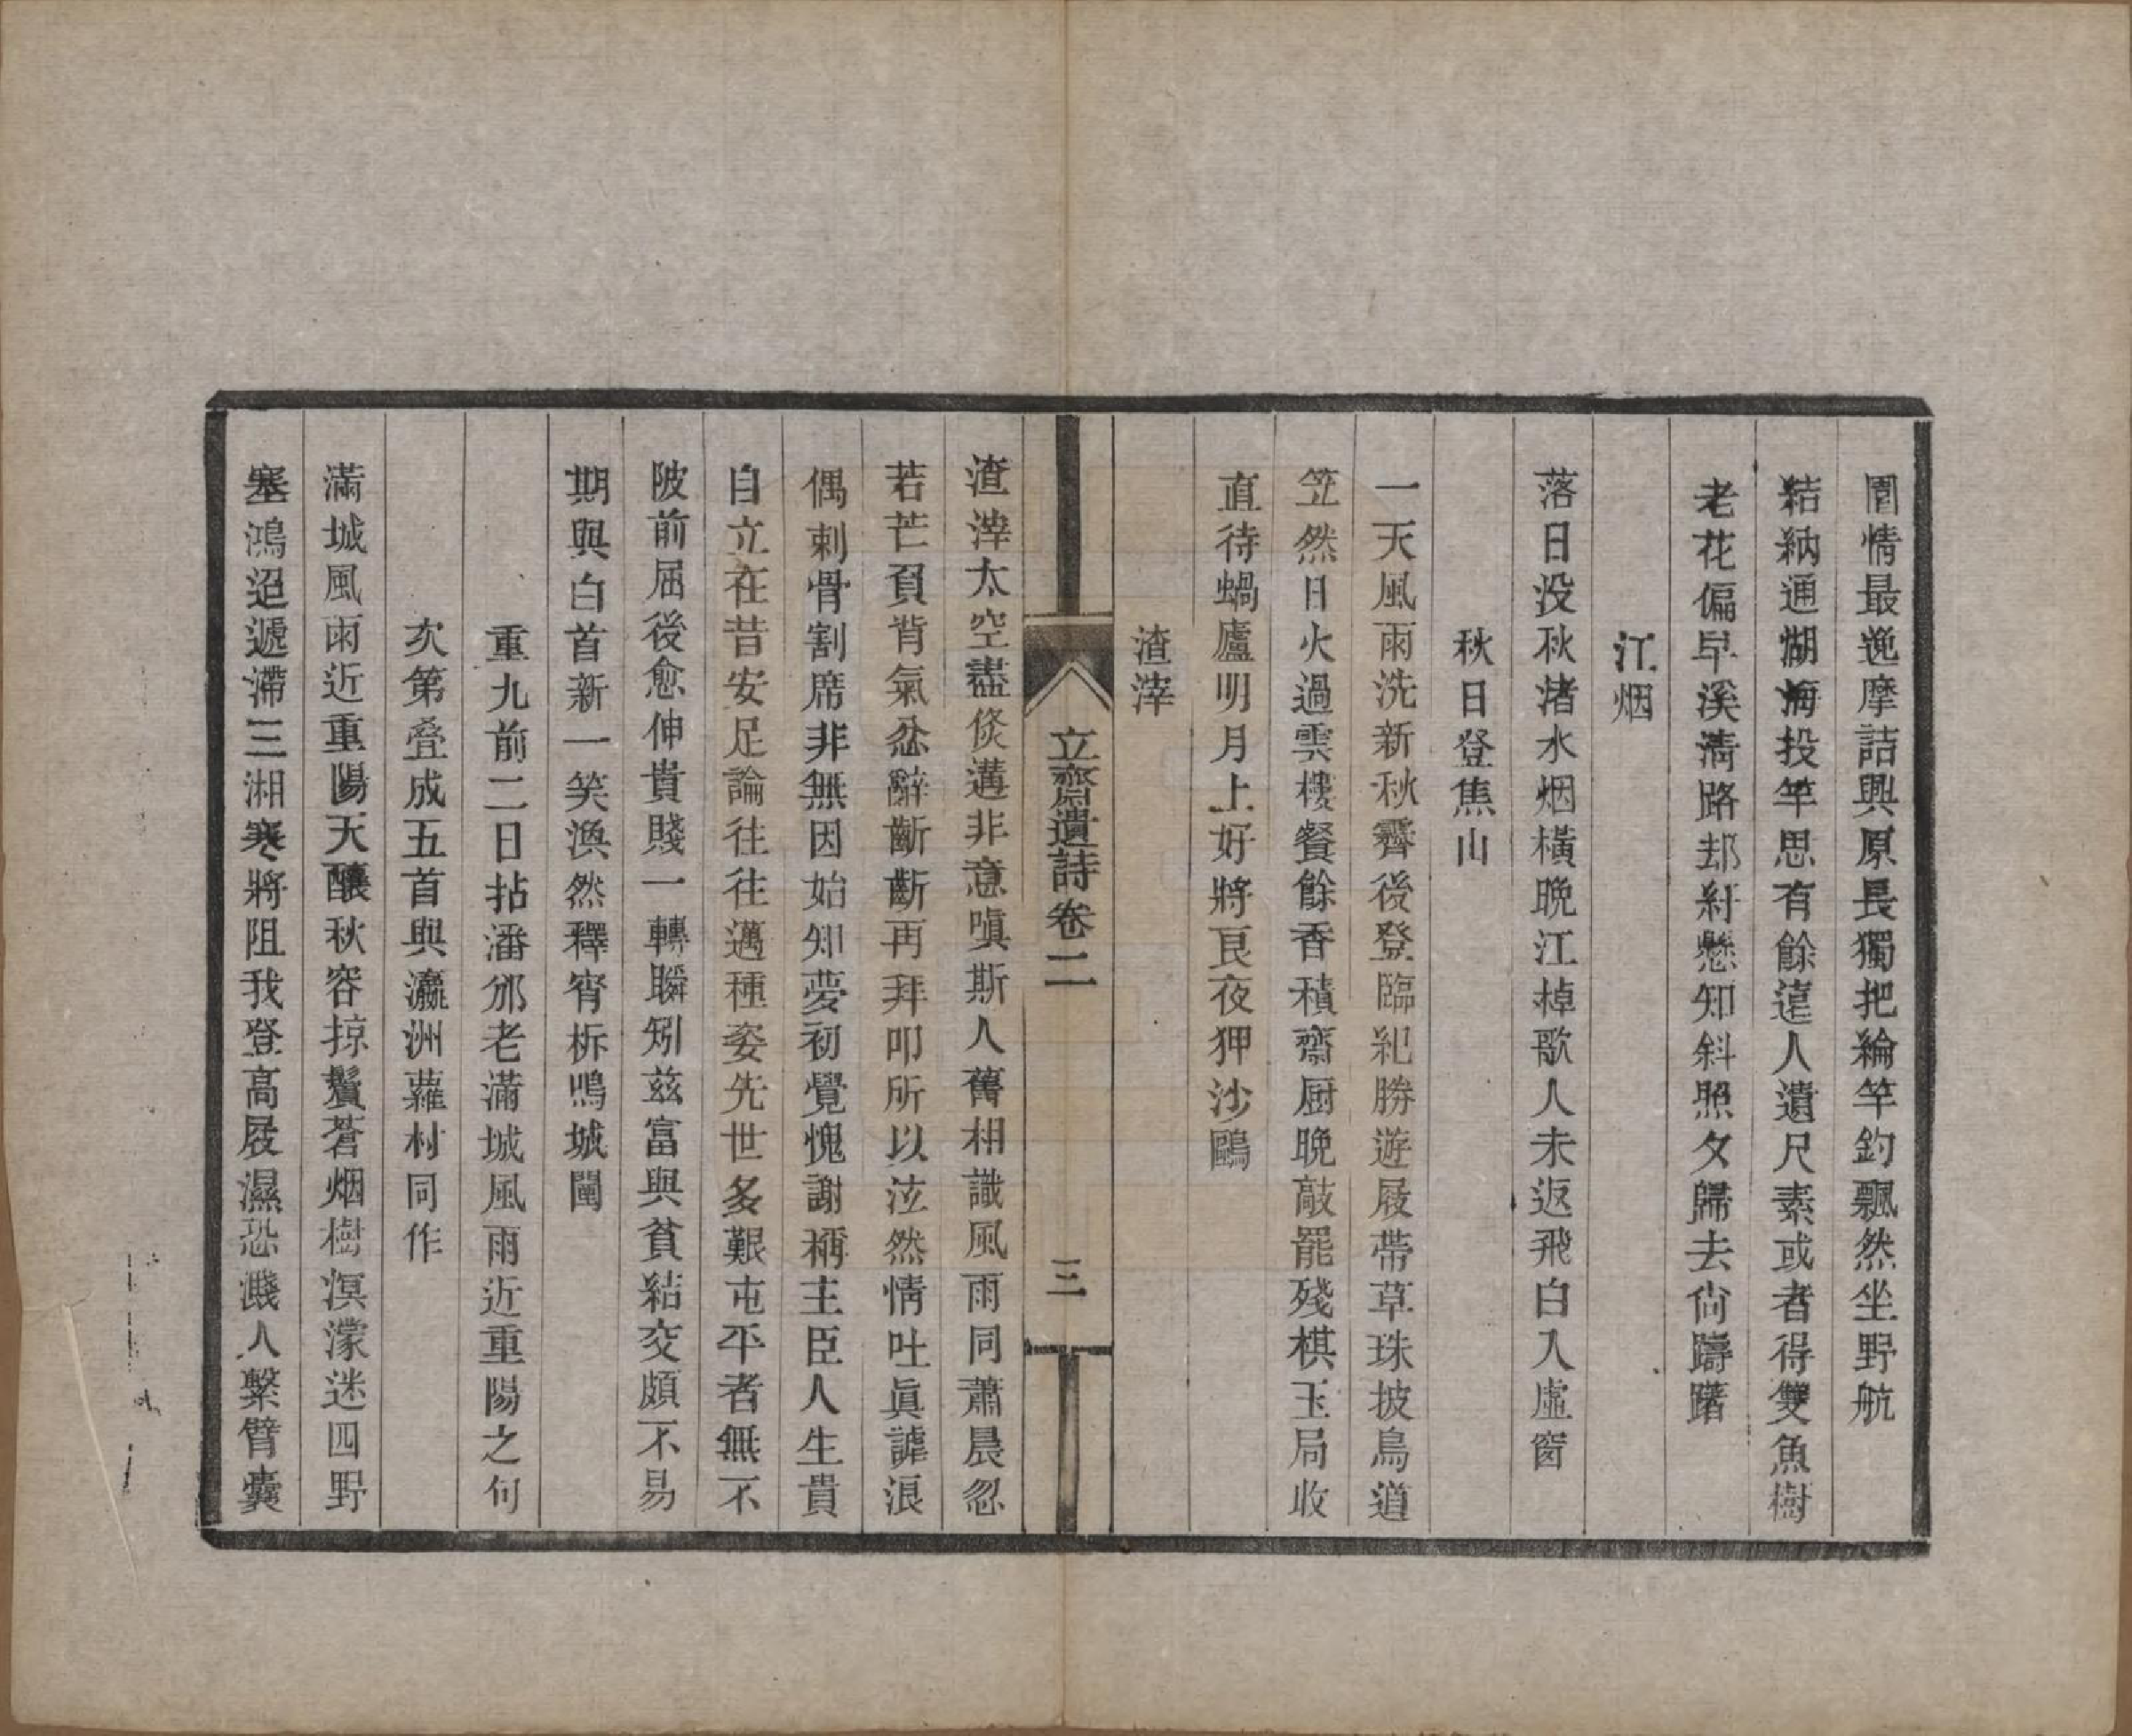 園情最逸摩詰興原長獨把綸竿釣飄然坐野航
結納通湖海投竿思有餘遠人遺尺素或者得雙魚樹
老花偏早溪淸路却紆懸知斜照夕歸去尙躊躇
江烟
落日没秋渚水烟橫晚江棹歌人未返飛白入虛窗
秋日登焦山
一天風雨洗新秋霽後登臨紀勝遊屐帶草珠披鳥道
笠然日火過雲樓餐餘香積齋厨晚敲罷殘棋玉局收
直待蝸廬明月上好將良夜狎沙鷗
渣滓
立齋遺詩卷二
三
渣滓太空盡倐遘非意嗔斯人舊相識風雨同蕭晨忽
若芒負背氣忿辭齗齗再拜叩所以泫然情吐眞謔浪
偶刺骨割席非無因始知夢初覺愧謝稱主臣人生貴
自立在昔安足論往往邁種姿先世多艱屯平者無不
陂前屈後愈伸貴賤一轉瞬矧茲富與貧結交頗不易
期與白首新一笑渙然釋宵柝鳴城闉
重九前二日拈潘邠老滿城風雨近重陽之句
次第叠成五首與瀛洲蘿村同作
滿城風雨近重陽天釀秋容掠鬢蒼烟樹溟濛迷四野
塞鴻迢遞滯三湘寒將阻我登高屐濕恐濺人繫臂囊